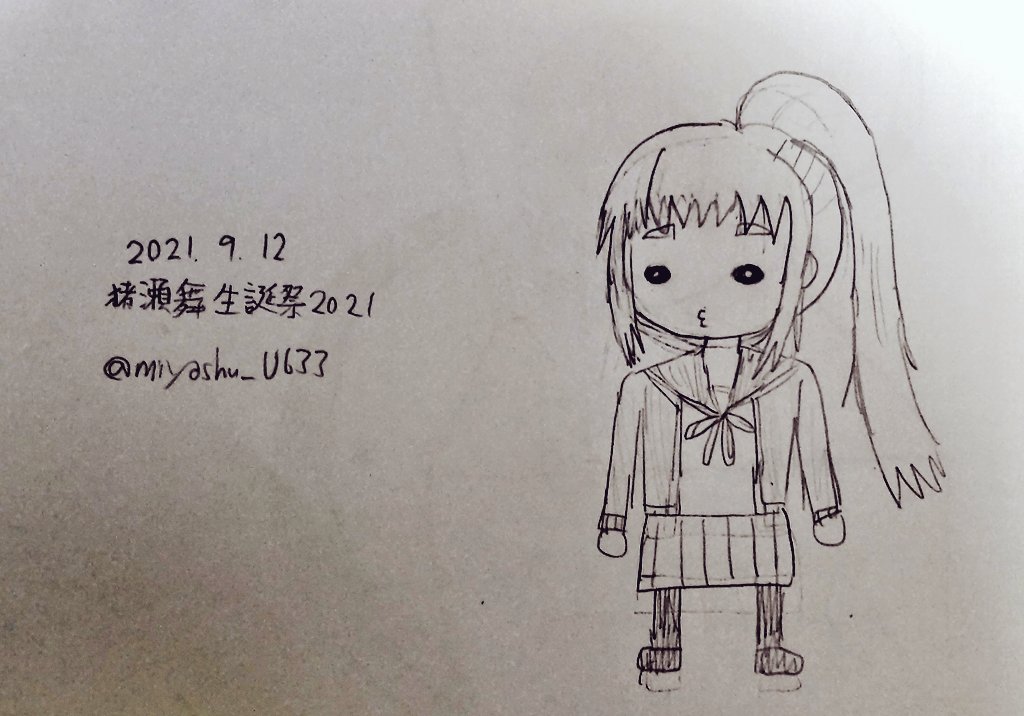 2021. 9. 12
猪瀬舞生誕祭2021
@miyashu_U633